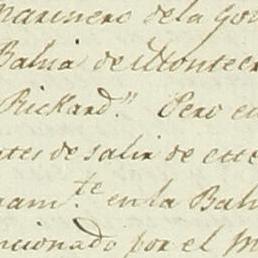 Marinero de la Go
Bahia de Monte
Rickard." Pero e
tes de salir de este
nam.te en la Bah
ncionado por el M